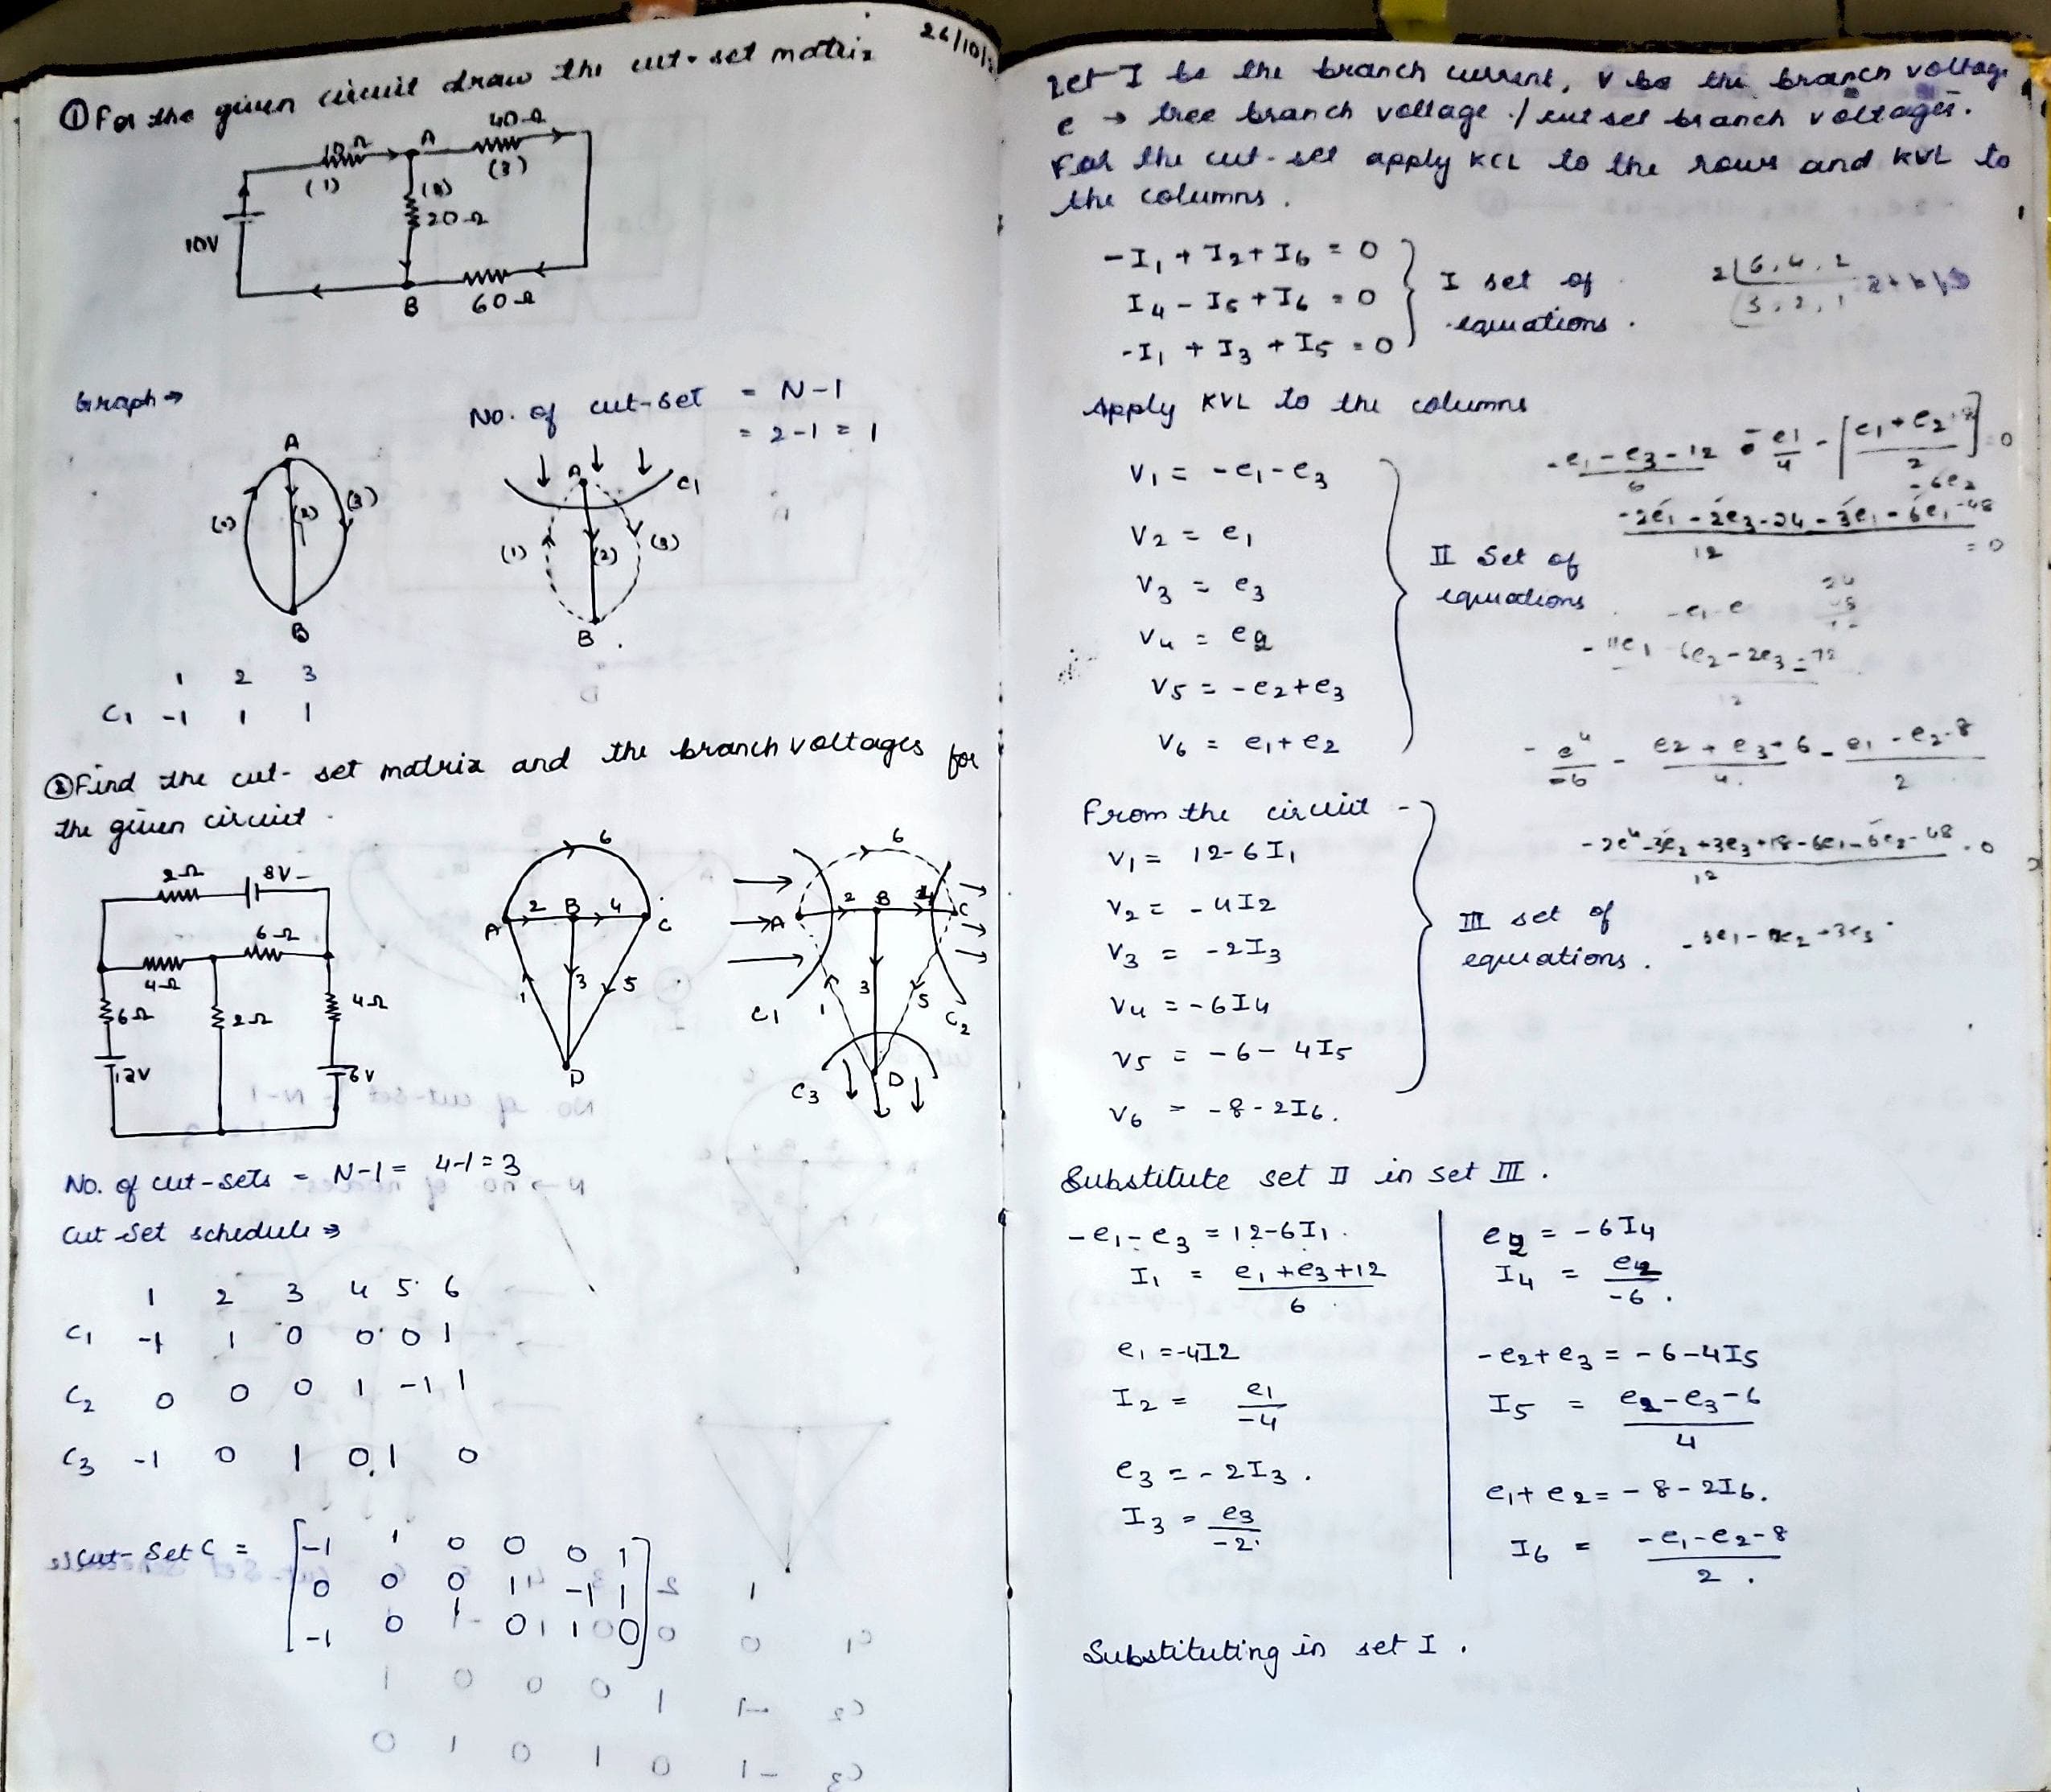 26/10/
① For the given circuit draw the cut-set matrix
10Ω
A
40Ω
(1)
(2)
(3)
20Ω
10V
B
60Ω
Graph →
No. of cut-set = N-1
= 2-1 = 1
A
(2)
(3)
B
A
C1
(1)
(2)
(3)
B
1 2 3
C1 -1 1 1
② Find the cut-set matrix and the branch voltages for
the given circuit.
2Ω 8V
6Ω
4Ω
6Ω 2Ω 4Ω
12V 6V
6
A 2 B 4 C
1 3 5
D
6
A 2 B 4 C
C1 1 3 5 C2
C3 D
No. of cut-sets = N-1 = 4-1 = 3
Cut Set schedule ⇒
1 2 3 4 5 6
C1 -1 1 0 0 0 1
C2 0 0 0 1 -1 1
C3 -1 0 1 0 1 0
Cut-Set C = [-1 1 0 0 0 1
0 0 0 1 -1 1
-1 0 1 0 1 0]
Let I be the branch current, V be the branch voltage
e → tree branch voltage / cut set branch voltages.
For the cut-set apply KCL to the rows and KVL to
the columns.
-I1 + I2 + I6 = 0
I4 - I5 + I6 = 0
-I1 + I3 + I5 = 0
I set of
equations.
2 | 6, 4, 2
3, 2, 1
Apply KVL to the columns
V1 = -e1-e3
V2 = e1
V3 = e3
V4 = e2
V5 = -e2+e3
V6 = e1+e2
II Set of
equations
From the circuit -
V1 = 12-6I1
V2 = -4I2
V3 = -2I3
V4 = -6I4
V5 = -6-4I5
V6 = -8-2I6.
III set of
equations.
Substitute set II in set III.
-e1-e3 = 12-6I1.
I1 = e1+e3+12
6
e1 = -4I2
I2 = e1
-4
e3 = -2I3.
I3 = e3
-2
e2 = -6I4
I4 = e2
-6.
-e2+e3 = -6-4I5
I5 = e2-e3-6
4
e1+e2 = -8-2I6.
I6 = -e1-e2-8
2.
Substituting in set I.